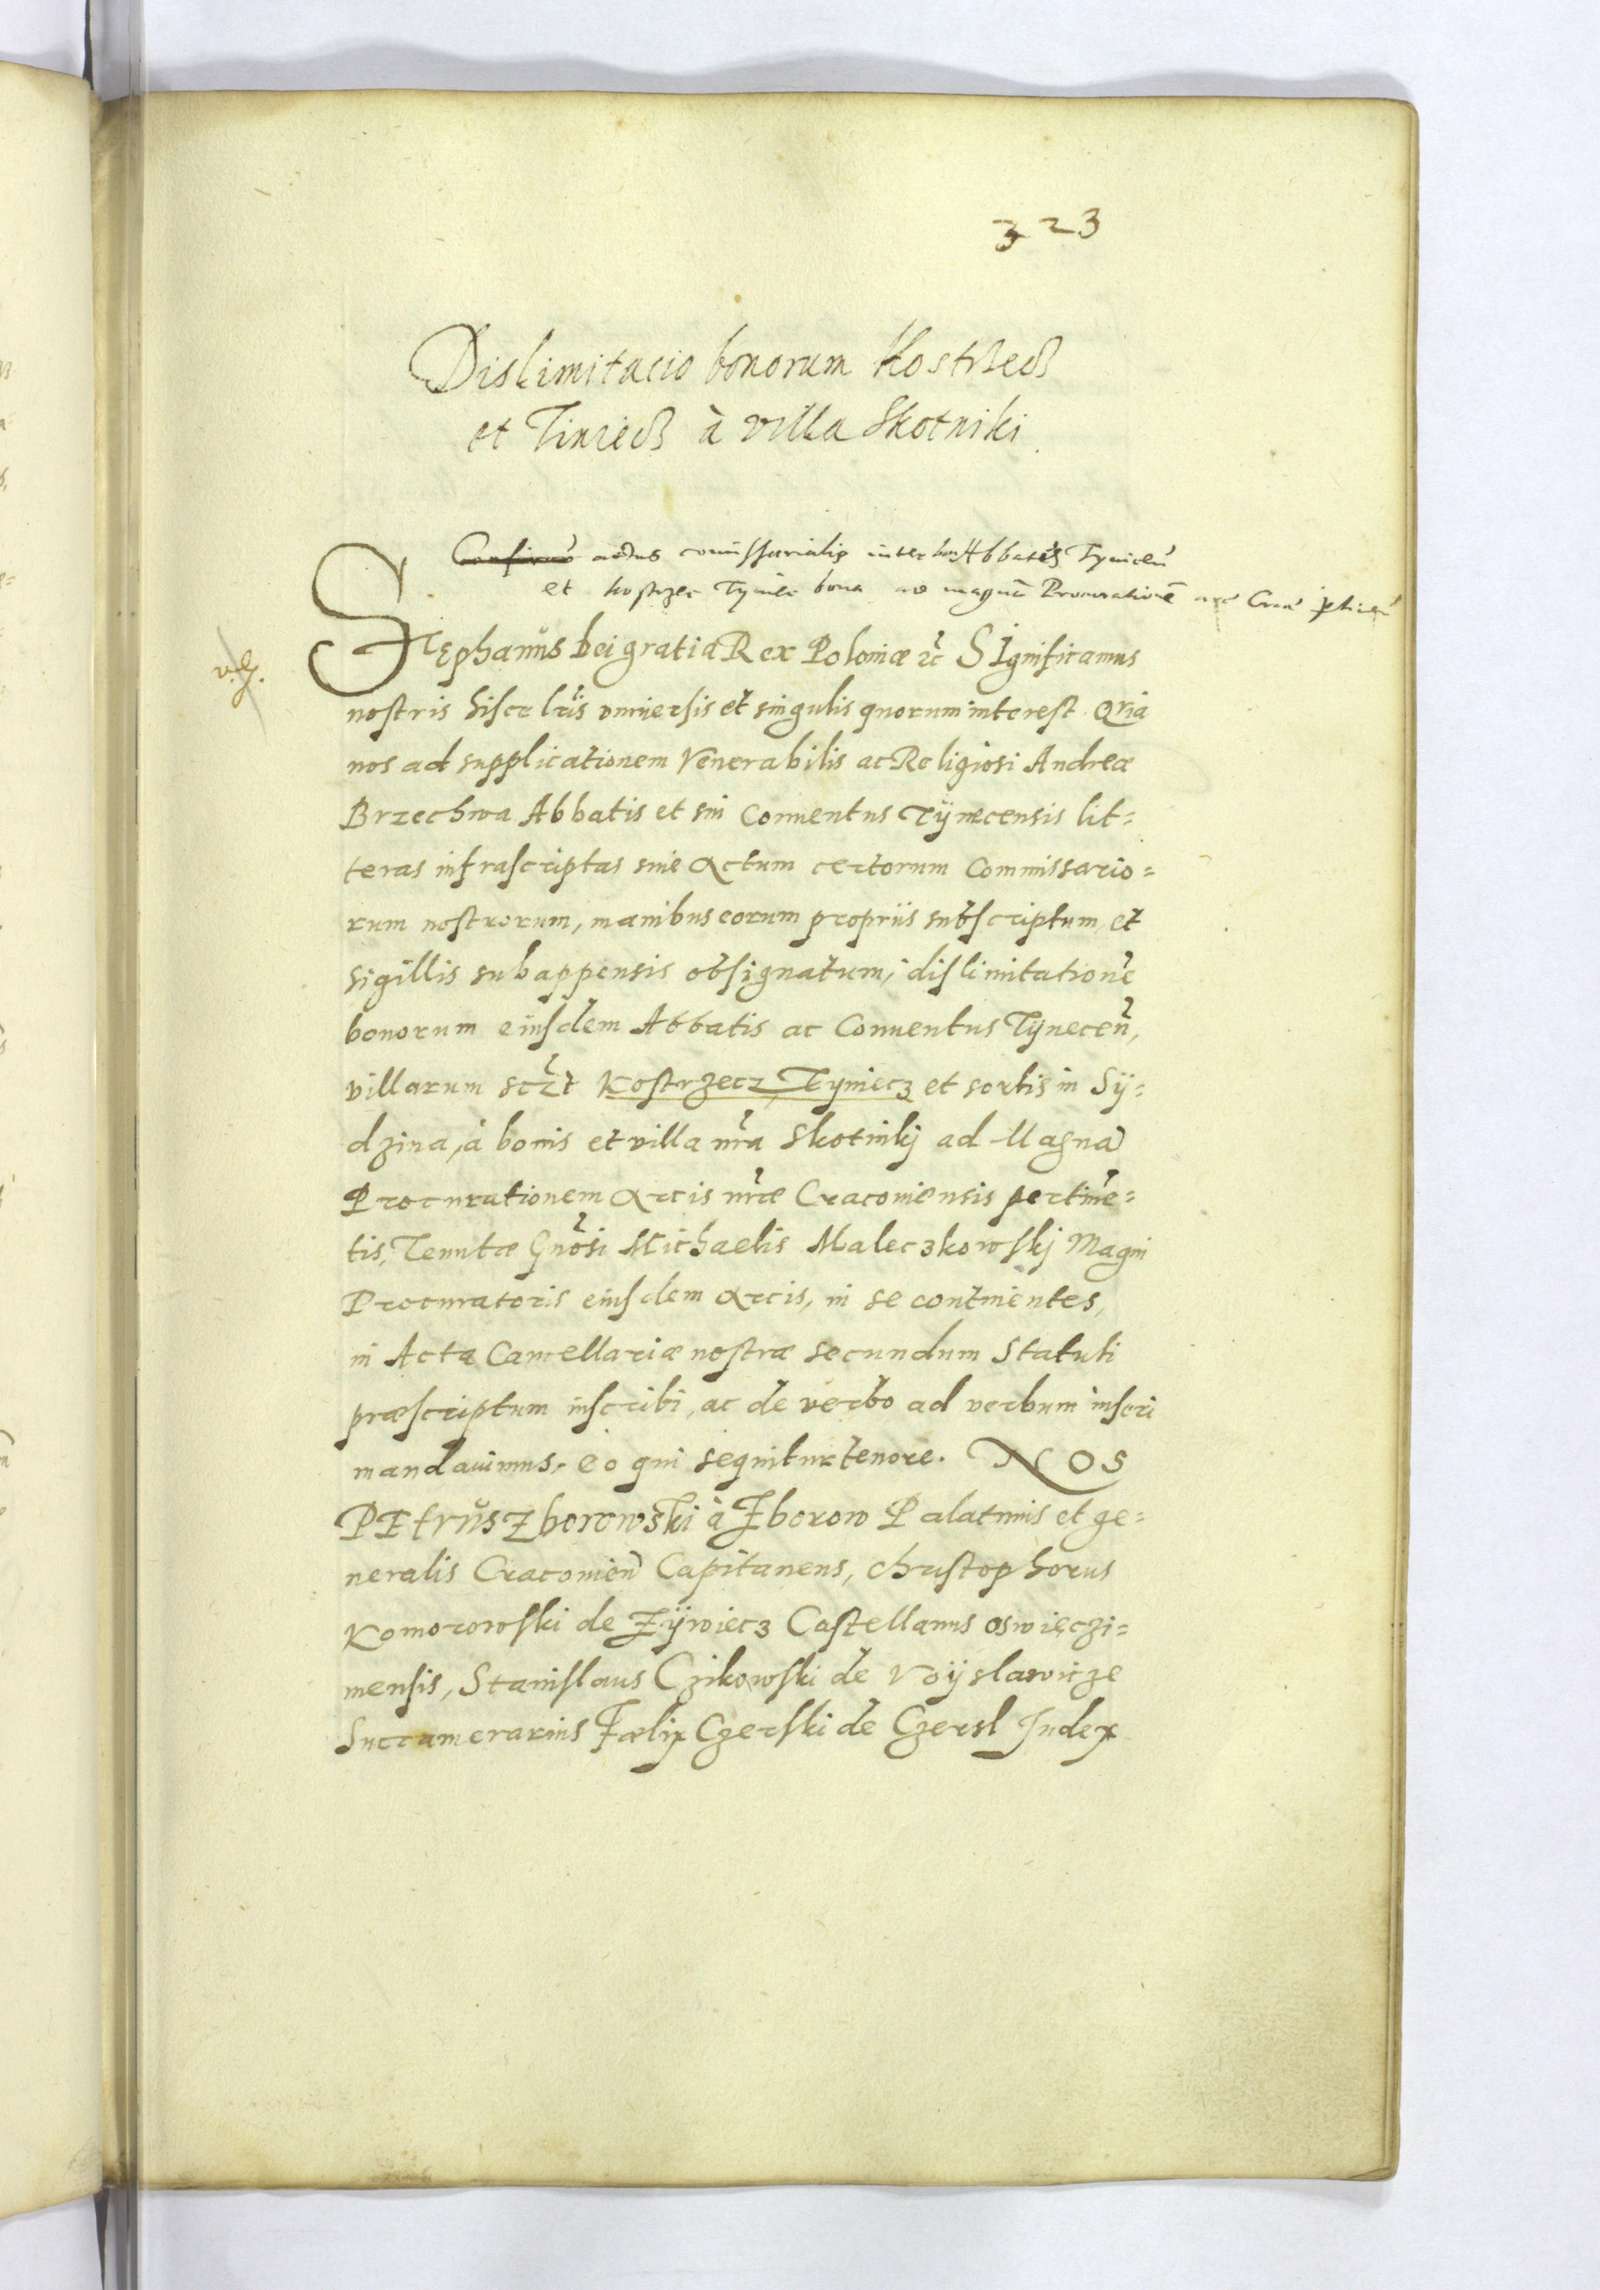 323
Dislimitacio bonorum Kostrzecz
et Tiniecz à villa Skotniki
Confirmō actus comissarialis inter bon Abbatis Tynicen̄
et Kostrzec Tyniec bona ad magnā Procurationē
v.g.
Stephanus Dei gratia Rex Poloniæ ꝛc̄ SIgnificamus
nostris hisce lr̄is vniuersis et singulis quorum interest. Qria
nos ad supplicationem Venerabilis ac Religiosi Andreæ
Brzechwa Abbatis et sui Conuentus Tÿnecensis lit=
teras infrascriptas siue actum certorum Commissario=
rum nostrorum, manibus eorum propriis subscriptum, et
sigillis subappensis obsignatum, dislimitatione̅
bonorum eiusdem Abbatis ac Conuentus Tÿnecen̄,
villarum sczt̄ Kostrzecz, Tyniecz et sortis in Sÿ=
dzina, à bonis et villa nr̄a Skotnikj ad Magna̅
Procurationem arcis nr̄æ Cracouiensis pertine̅=
tis, Tenutæ Gn̄osi Michaelis Maleczkowskj Magni
Procuratoris eiusdem arcis, in se continentes,
in Acta Cancellariæ nostræ secundum Statuti
præscriptum inscribi, ac de verbo ad verbum inseri
mandauimus, eo qui sequitur tenore. NOS
PEtrŭs Zborowski à Zborow Palatinus et ge=
neralis Cracouien̄ Capitaneus, Christophorus
Komorowski de Zÿwiecz Castellanus Oswięczi=
mensis, Stanislaus Czikowski de Voÿslawicze
Succamerarius Fœlix Czerski de Czersl Iudex